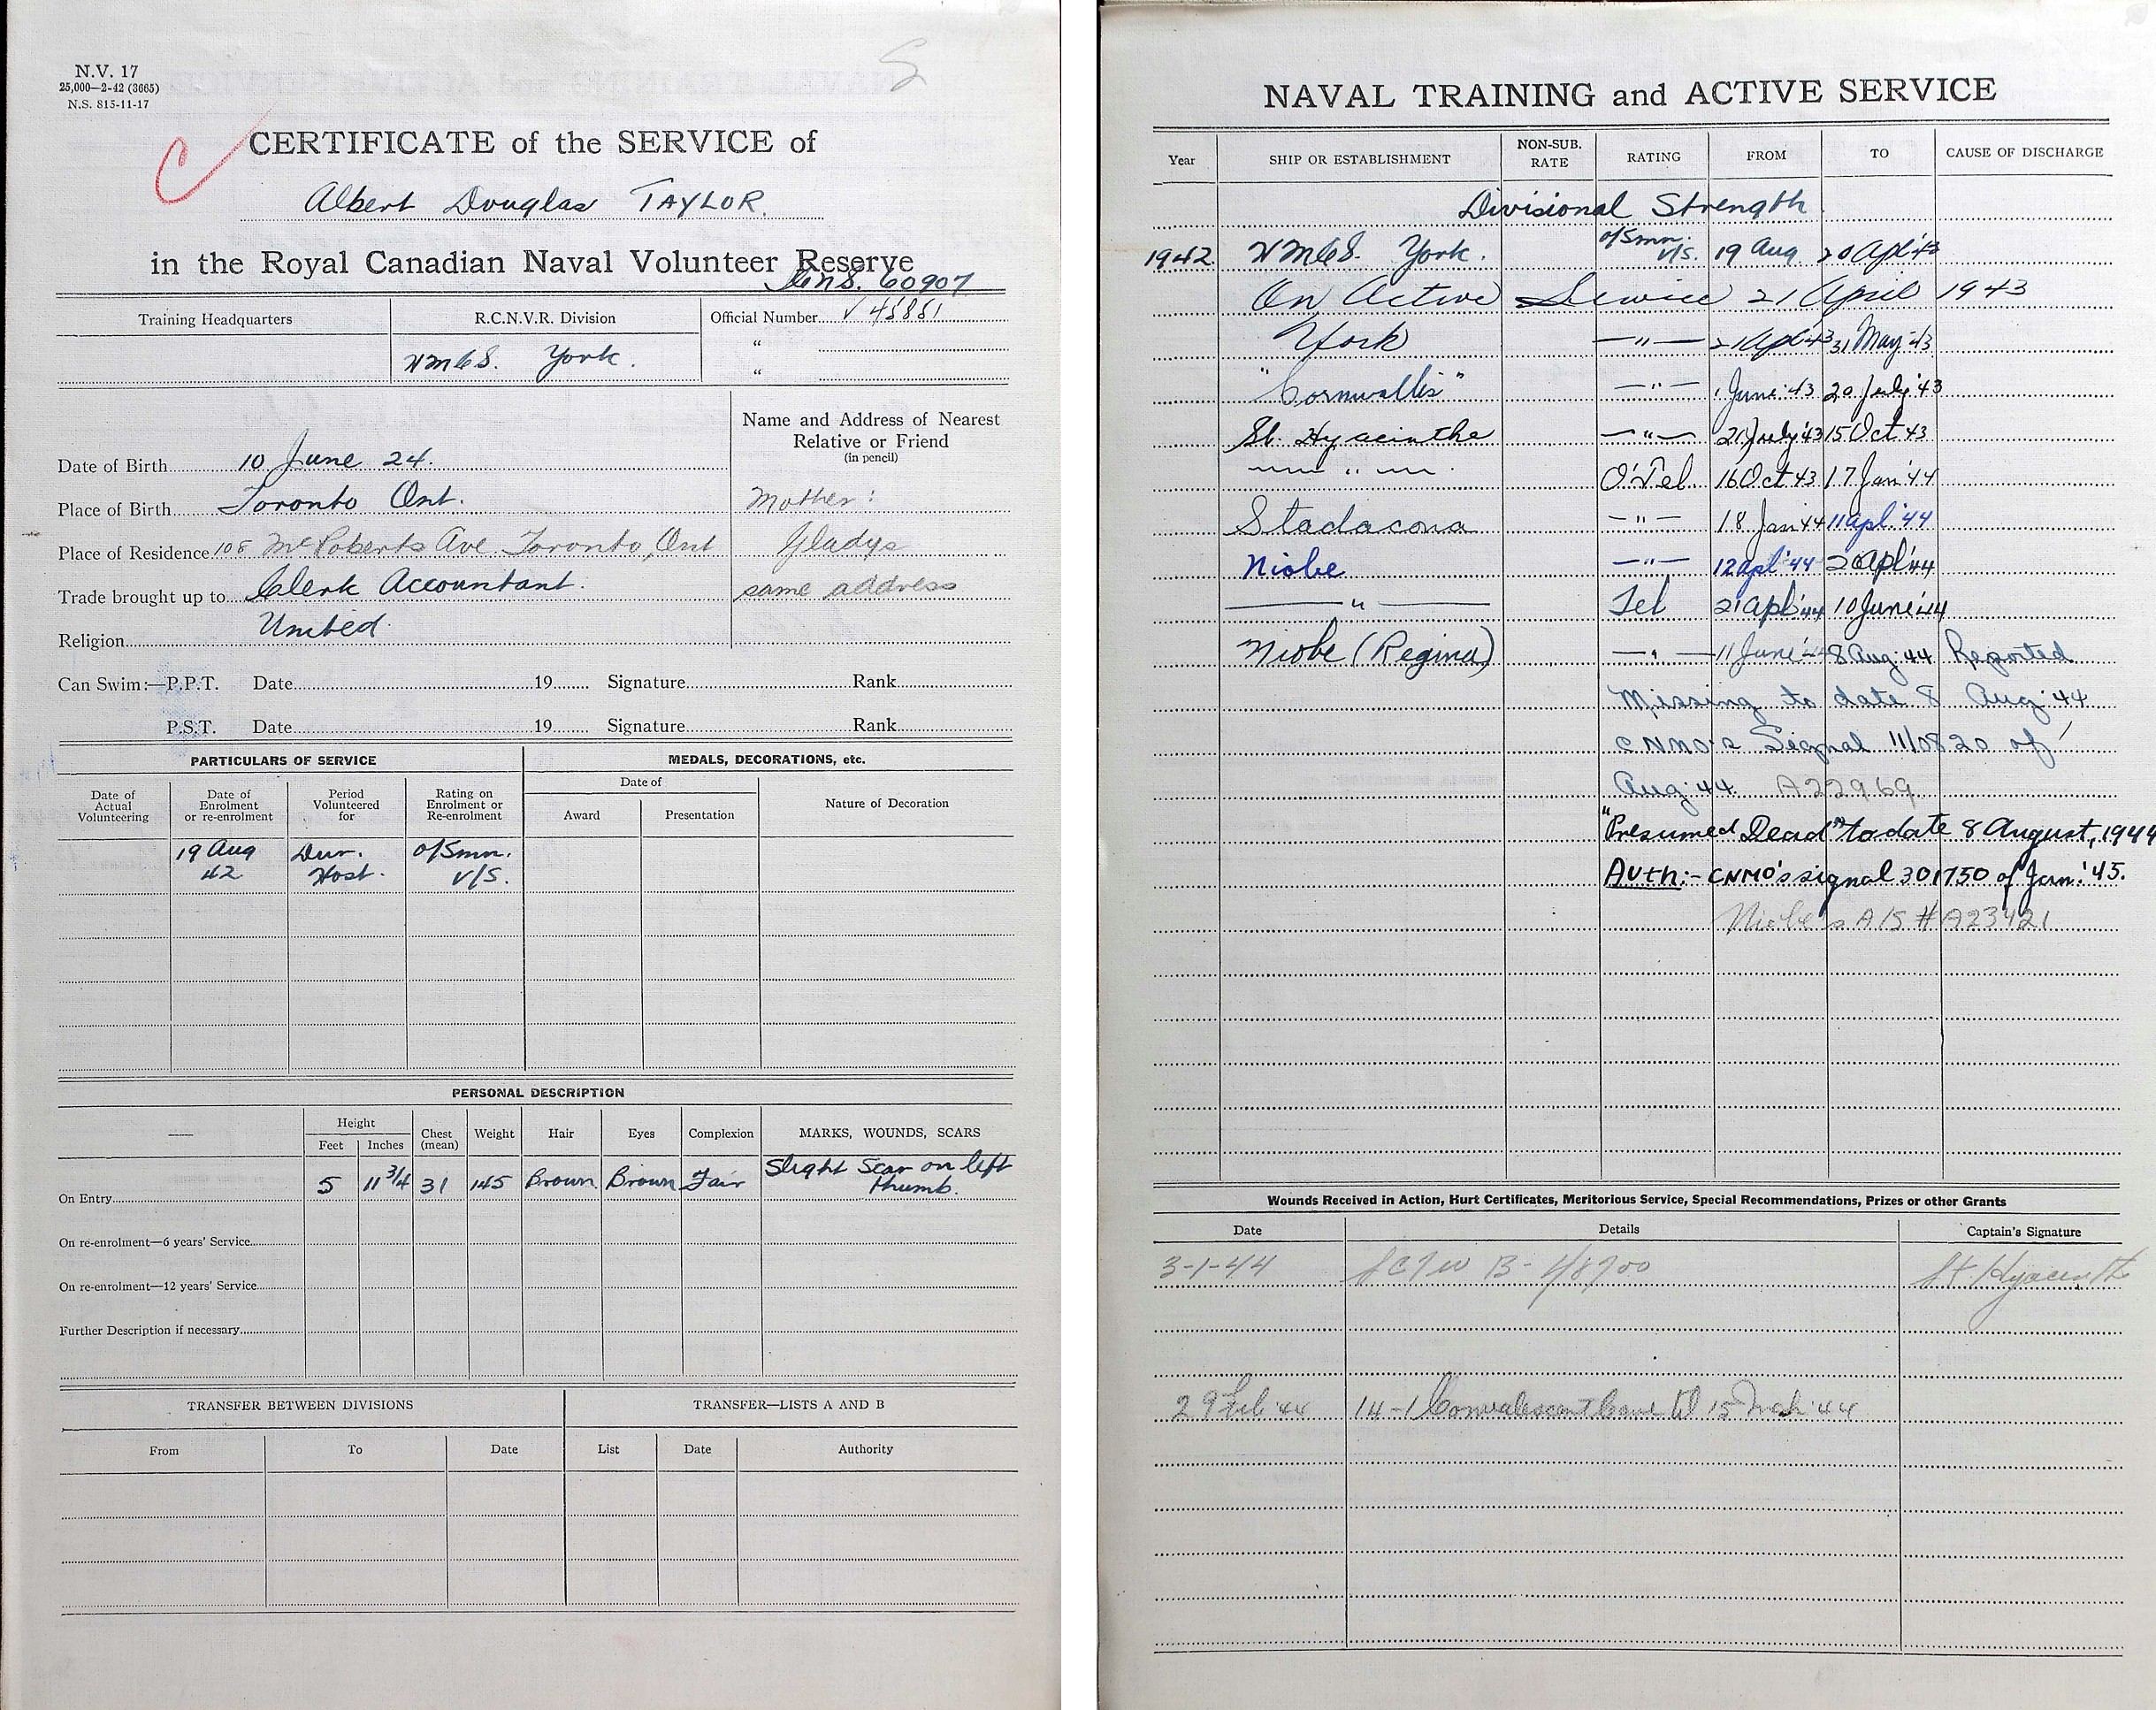 N.V. 17
25,000—2-42 (3665)
N.S. 815-11-17
C
CERTIFICATE of the SERVICE of
Albert Douglas TAYLOR.
in the Royal Canadian Naval Volunteer Reserve
60907
Training Headquarters
R.C.N.V.R. Division
HMCS. York.
Official Number V 45861
"
"
Name and Address of Nearest
Relative or Friend
(in pencil)
Date of Birth 10 June 24.
Place of Birth Toronto Ont.
Mother:
Place of Residence 108 McRoberts Ave Toronto, Ont
Gladys
Trade brought up to Clerk Accountant.
same address
Religion United
Can Swim:—P.P.T. Date 19 Signature Rank
P.S.T. Date 19 Signature Rank
PARTICULARS OF SERVICE
MEDALS, DECORATIONS, etc.
Date of Actual Volunteering
Date of Enrolment or re-enrolment
Period Volunteered for
Rating on Enrolment or Re-enrolment
Date of
Award
Presentation
Nature of Decoration
19 Aug 42
Dur. Host.
O/Smn. V/S.
PERSONAL DESCRIPTION
Height
Feet Inches Chest (mean) Weight Hair Eyes Complexion MARKS, WOUNDS, SCARS
On Entry 5 11 3/4 31 145 Brown Brown Fair Slight Scar on left thumb.
On re-enrolment—6 years' Service
On re-enrolment—12 years' Service
Further Description if necessary
TRANSFER BETWEEN DIVISIONS
TRANSFER—LISTS A AND B
From To Date List Date Authority
NAVAL TRAINING and ACTIVE SERVICE
Year SHIP OR ESTABLISHMENT NON-SUB. RATE RATING FROM TO CAUSE OF DISCHARGE
Divisional Strength
1942 HMCS. York. O/Smn. V/S. 19 Aug 20 Apl '43
On Active Service 21 April 1943
York —"— 21 Apl '43 31 May '43
"Cornwallis" —"— 1 June '43 20 July '43
St. Hyacinthe —"— 21 July '43 15 Oct 43
—"— O'Tel. 16 Oct 43 17 Jan '44
Stadacona —"— 18 Jan 44 11 Apl '44
Niobe —"— 12 Apl '44 20 Apl '44
—"— Tel 21 Apl '44 10 June '44
Niobe (Regina) —"— 11 June '44 8 Aug '44 Reported
Missing to date 8 Aug '44
CNMO's Signal 11/0820 of
Aug '44 A22969
"Presumed Dead" to date 8 August, 1944
Auth:- CNMO's signal 301750 of Jan. '45.
Niobe's A/S # A23421
Wounds Received in Action, Hurt Certificates, Meritorious Service, Special Recommendations, Prizes or other Grants
Date Details Captain's Signature
3-1-44 St Hyacinth
29 Feb '44 14-1 Convalescent Leave to 15 Mch '44